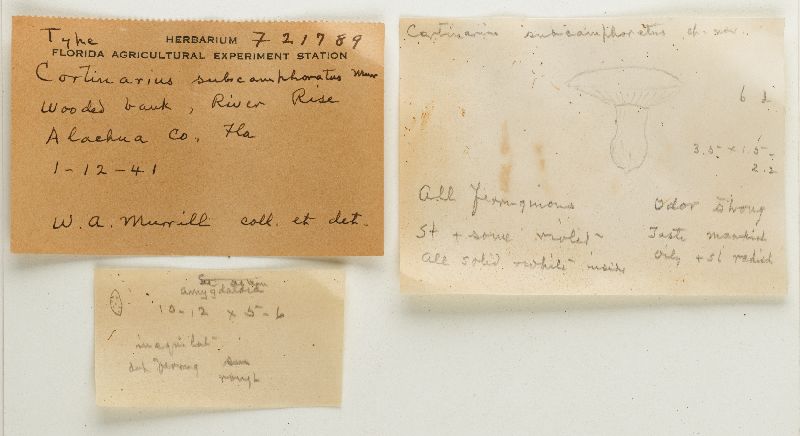 Type HERBARIUM 721789
FLORIDA AGRICULTURAL EXPERIMENT STATION
Cortinarius subcamphoratus Murr
Wooded bank, River Rise
Alachua Co. Fla
1-12-41
W. A. Murrill coll. et det.
Cortinarius subcamphoratus sp. nov.
3.5 x 1.5-
2.2
All ferruginous
St + some violet
all solid white inside
Odor strong
Taste
Oily + sl
amygdaloid
10-12 x 5-6